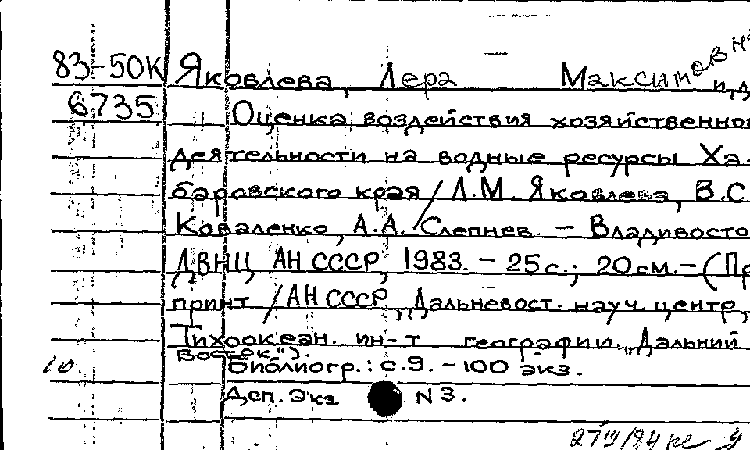 83-50К Яковлева, Лера Максимовна
6735 Оценка воздействия хозяйственно
деятельности на водные ресурсы Ха
баровского края / Л.М. Яковлева, В.С
Коваленко, А.А. Слепнев. – Владивосто
ДВНЦ АН СССР, 1983. – 25 с.; 20 см. – (Пре
принт / АН СССР, Дальневост. науч. центр,
Тихоокеан. ин-т географии. „Дальний
Восток").
10 Библиогр.: с. 9. – 100 экз.
Дсп. Экз N 3.